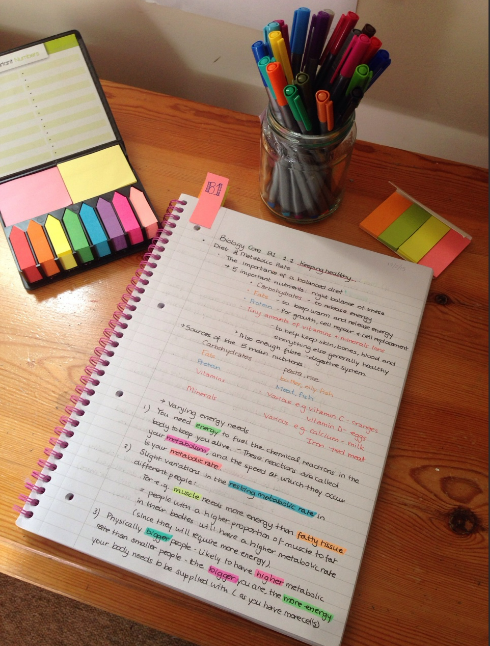 Important Numbers
B1
Biology Core B1 1.1 Keeping healthy
Diet & Metabolic Rate
- The importance of a balanced diet:
→ 5 important nutrients - right balance of these
• Carbohydrates - to release energy
• Fats - to keep warm and release energy
• Protein - for growth, cell repair & cell replacement
• Tiny amounts of vitamins & minerals ions
- to help keep skin, bones, blood and
everything else generally healthy
• Also enough fibre - digestive system
→ Sources of the 5 main nutrients
Carbohydrates pasta, rice
Fats oily fish
Protein Meat, fish
Vitamins Various e.g. vitamin C - oranges
vitamin D - eggs
Minerals Various e.g. calcium - milk
Iron - red meat
→ Varying energy needs
1) You need energy to fuel the chemical reactions in the
body to keep you alive. - These reactions are called
your metabolism, and the speed at which they occur
is your metabolic rate.
2) Slight variations in the resting metabolic rate in
different people:
For e.g. muscle needs more energy than fatty tissue
= people with a higher proportion of muscle to fat
in their bodies will have a higher metabolic rate
(since they will require more energy)
3) Physically bigger people - likely to have higher metabolic
rate than smaller people - the bigger you are, the more energy
your body needs to be supplied with (as you have more cells)